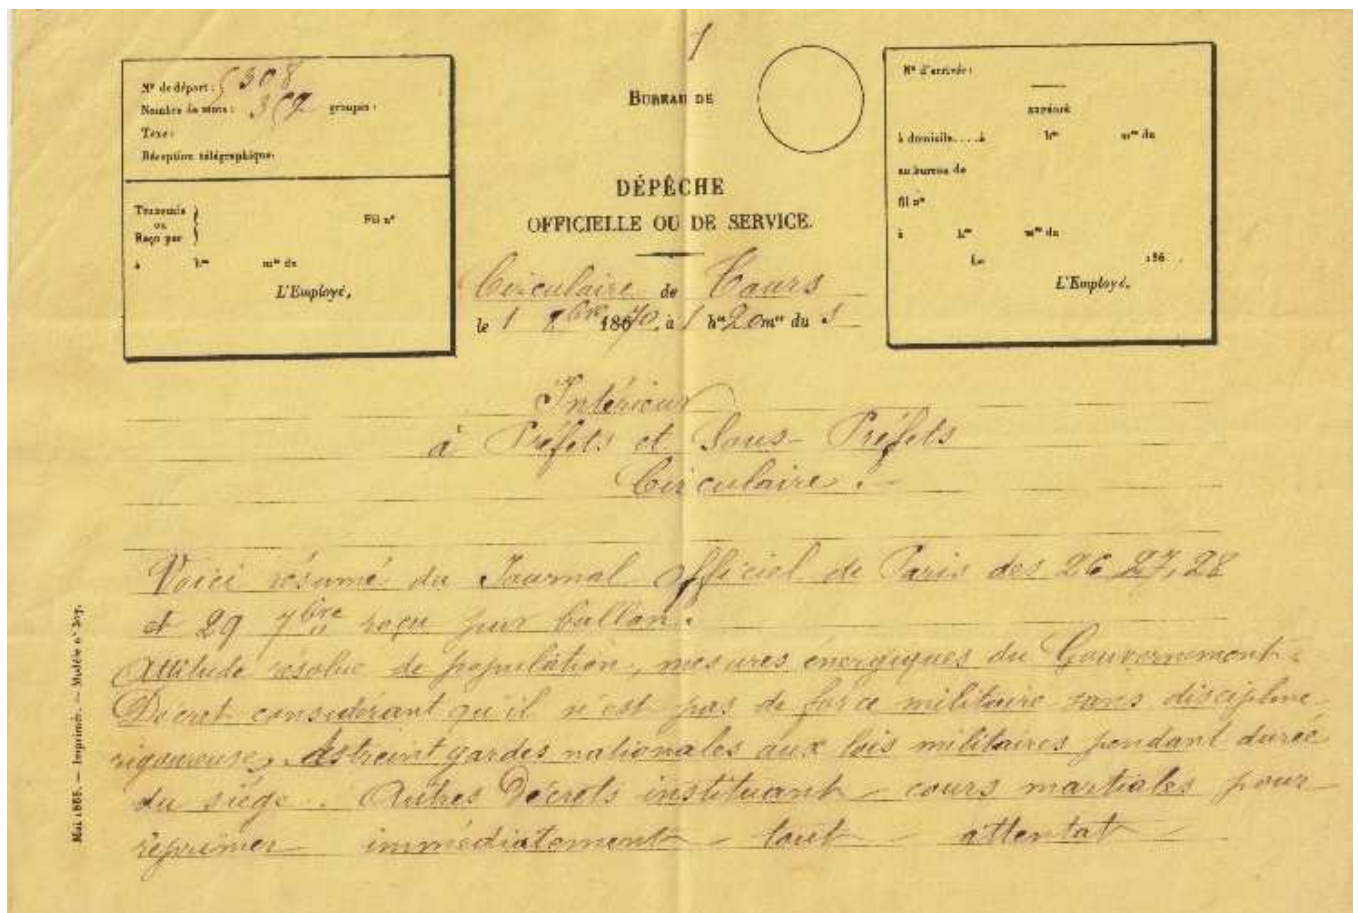 1
N° de départ : 5308
Nombre de mots : 362 groupes :
Texe :
Réception télégraphique.
Transmis
ou
Reçu par
Fil n°
à h^re m^es du
L'Employé,
BUREAU DE
DÉPÊCHE
OFFICIELLE OU DE SERVICE.
Circulaire de Tours
le 1 8bre 1870, à 1 h^re 20 m^es du s
N° d'arrivée :
EXPÉDIÉ
à domicile....à h^re m^es du
au bureau de
fil n°
à h^re m^es du
Le 186 .
L'Employé.
Intérieur
à Préfets et Sous-Préfets
Circulaire.-
Voici résumé du Journal officiel de Paris des 26, 27, 28
et 29 7bre reçu par ballon.
Attitude résolue de population, mesures énergiques du Gouvernement-
Décret considérant qu'il n'est pas de force militaire sans discipline
rigoureuse, Astreint gardes nationales aux lois militaires pendant durée
du siège.. Autres Décrets instituant - cours martiales pour
réprimer immédiatement - tout - attentat -
Mai 1865. — Imprimés. — Modèle n°